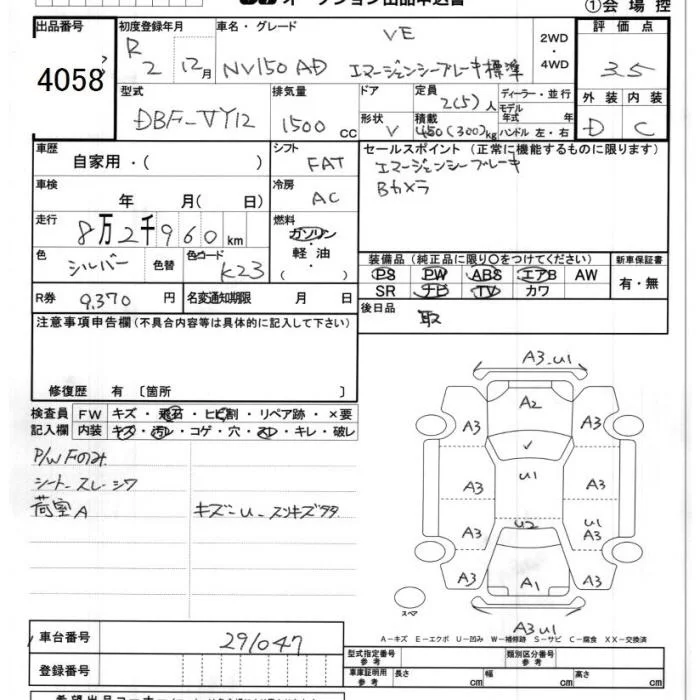 オークション出品申込書
①会場控
出品番号
4058
初度登録年月
R 2 12月
車名・グレード
VE
NV150 AD エマージェンシーブレーキ標準
2WD
・
4WD
評価点
3.5
外装 内装
D C
型式
DBF-VY12
排気量
1500 cc
ドア
形状 V
定員 2(5)人
積載 450(300)kg
ディーラー・並行
モデル
年式 年
ハンドル 左・右
車歴
自家用・( )
シフト
FAT
セールスポイント(正常に機能するものに限ります)
エマージェンシーブレーキ
Bカメラ
車検
年 月( 日)
冷房
AC
走行
8万2千960km
燃料
ガソリン
・
軽油
( )
色
シルバー
色替
色コード
K23
装備品(純正品に限り○をつけてください)
新車保証書
PS PW ABS エアB AW
SR ナビ TV カワ
有・無
R券 9,370円
名変通知期限 月 日
後日品
取
注意事項申告欄(不具合内容等は具体的に記入して下さい)
修復歴 有〔箇所 〕
検査員 FW キズ・飛石・ヒビ割・リペア跡・×要
記入欄 内装 キズ・汚レ・コゲ・穴・スレ・キレ・破レ
P/W Fのみ
シートスレ・シワ
荷室A
キズ=U-スリキズ多々
A3.U1
A2
A3 A3
U1
A3 A3
U2
A3 U1 A3
A3 A1 A3
スペア
A3U1
A−キズ E−エクボ U−凹み W−補修跡 S−サビ C−腐食 XX−交換済
車台番号
291047
登録番号
型式指定番号
参考
類別区分番号
参考
車庫証明用
参考
長さ cm 幅 cm 高さ cm
希望出品コーナー